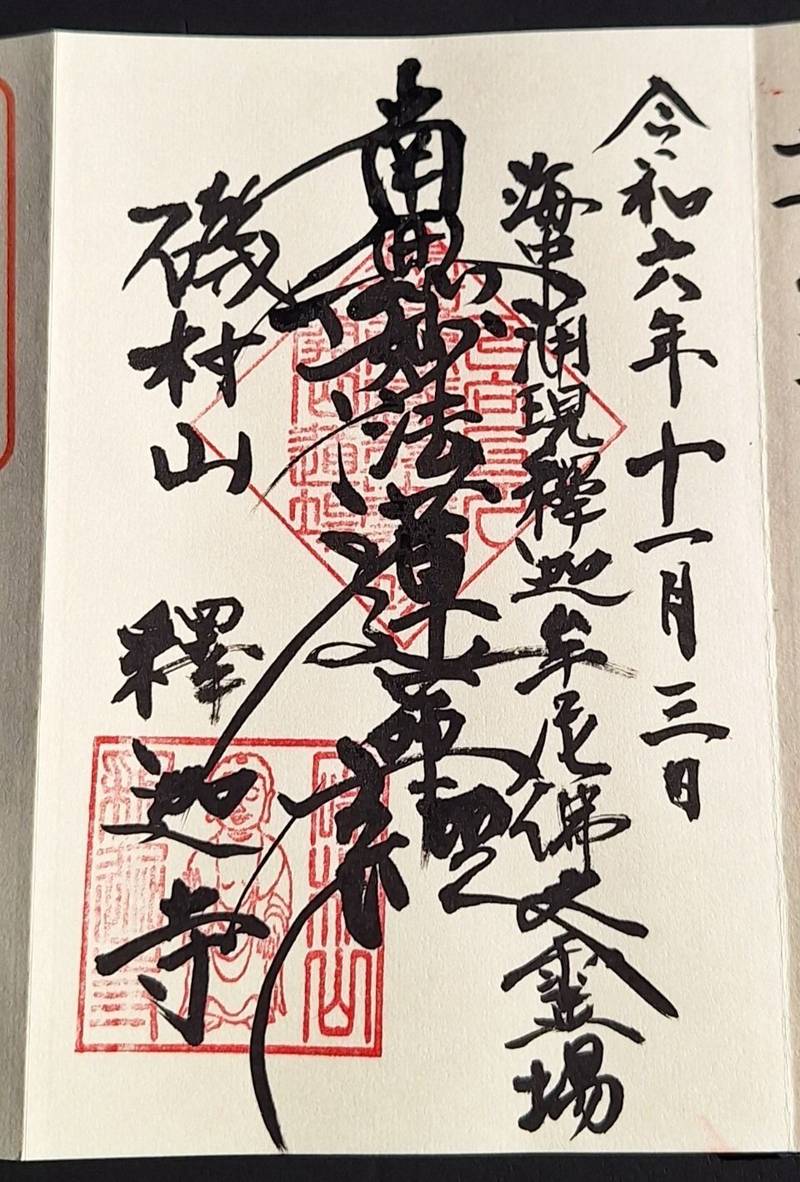 令和六年十一月三日
海中涌現釋迦牟尼佛大霊場
南無妙法蓮華経
磯村山 釋迦寺